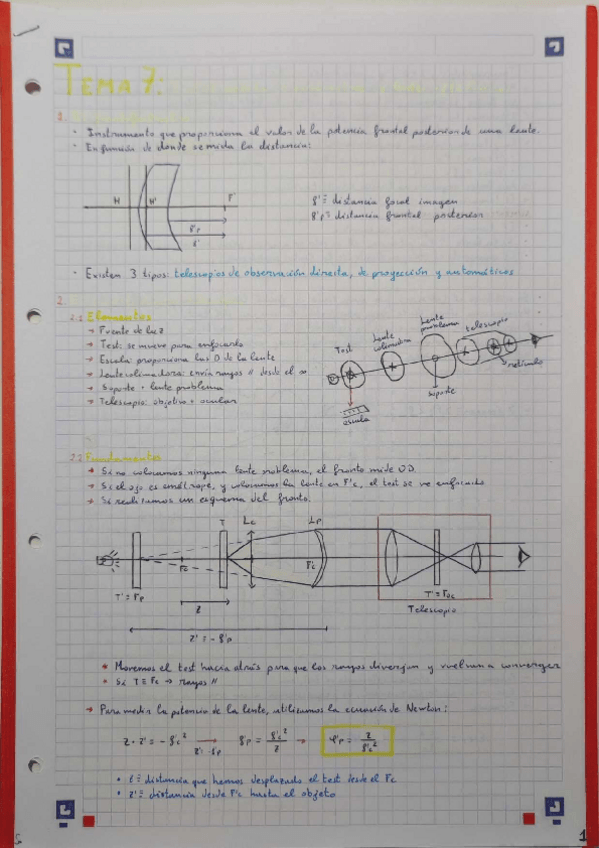 TEMA 7:
1.
· Instrumento que proporciona el valor de la potencia frontal posterior de una lente.
· En función de donde se mida la distancia:
H H' F'
f'p
f'
f' ≡ distancia focal imagen
f'p ≡ distancia frontal posterior
· Existen 3 tipos: telescopios de observación directa, de proyección y automáticos
2.
2.1 Elementos
→ Fuente de luz
→ Test: se mueve para enfocarlo
→ Escala: proporciona las D de la lente
→ Lente colimadora: envía rayos // desde el ∞
→ Soporte + lente problema
→ Telescopio: objetivo + ocular
Test
lente colimadora
lente problema
telescopio
retículo
soporte
escala
2.2 Fundamentos
→ Si no colocamos ninguna lente problema, el fronto mide 0D.
→ Si el ojo es emétrope, y colocamos la lente en F'c, el test se ve enfocado
→ Si realizamos un esquema del fronto.
T Lc Lp
Fc F'c
T' ≡ Fp
T' ≡ Foc
Telescopio
z
z' = - f'p
• Movemos el test hacia atrás para que los rayos diverjan y vuelvan a converger
• Si T ≡ Fc → rayos //
→ Para medir la potencia de la lente, utilizamos la ecuación de Newton:
z · z' = - f'c² → z' = - f'p f'p = f'c² / z → φ'p = z / f'c²
• z ≡ distancia que hemos desplazado el test desde el Fc
• z' ≡ distancia desde F'c hasta el objeto
1